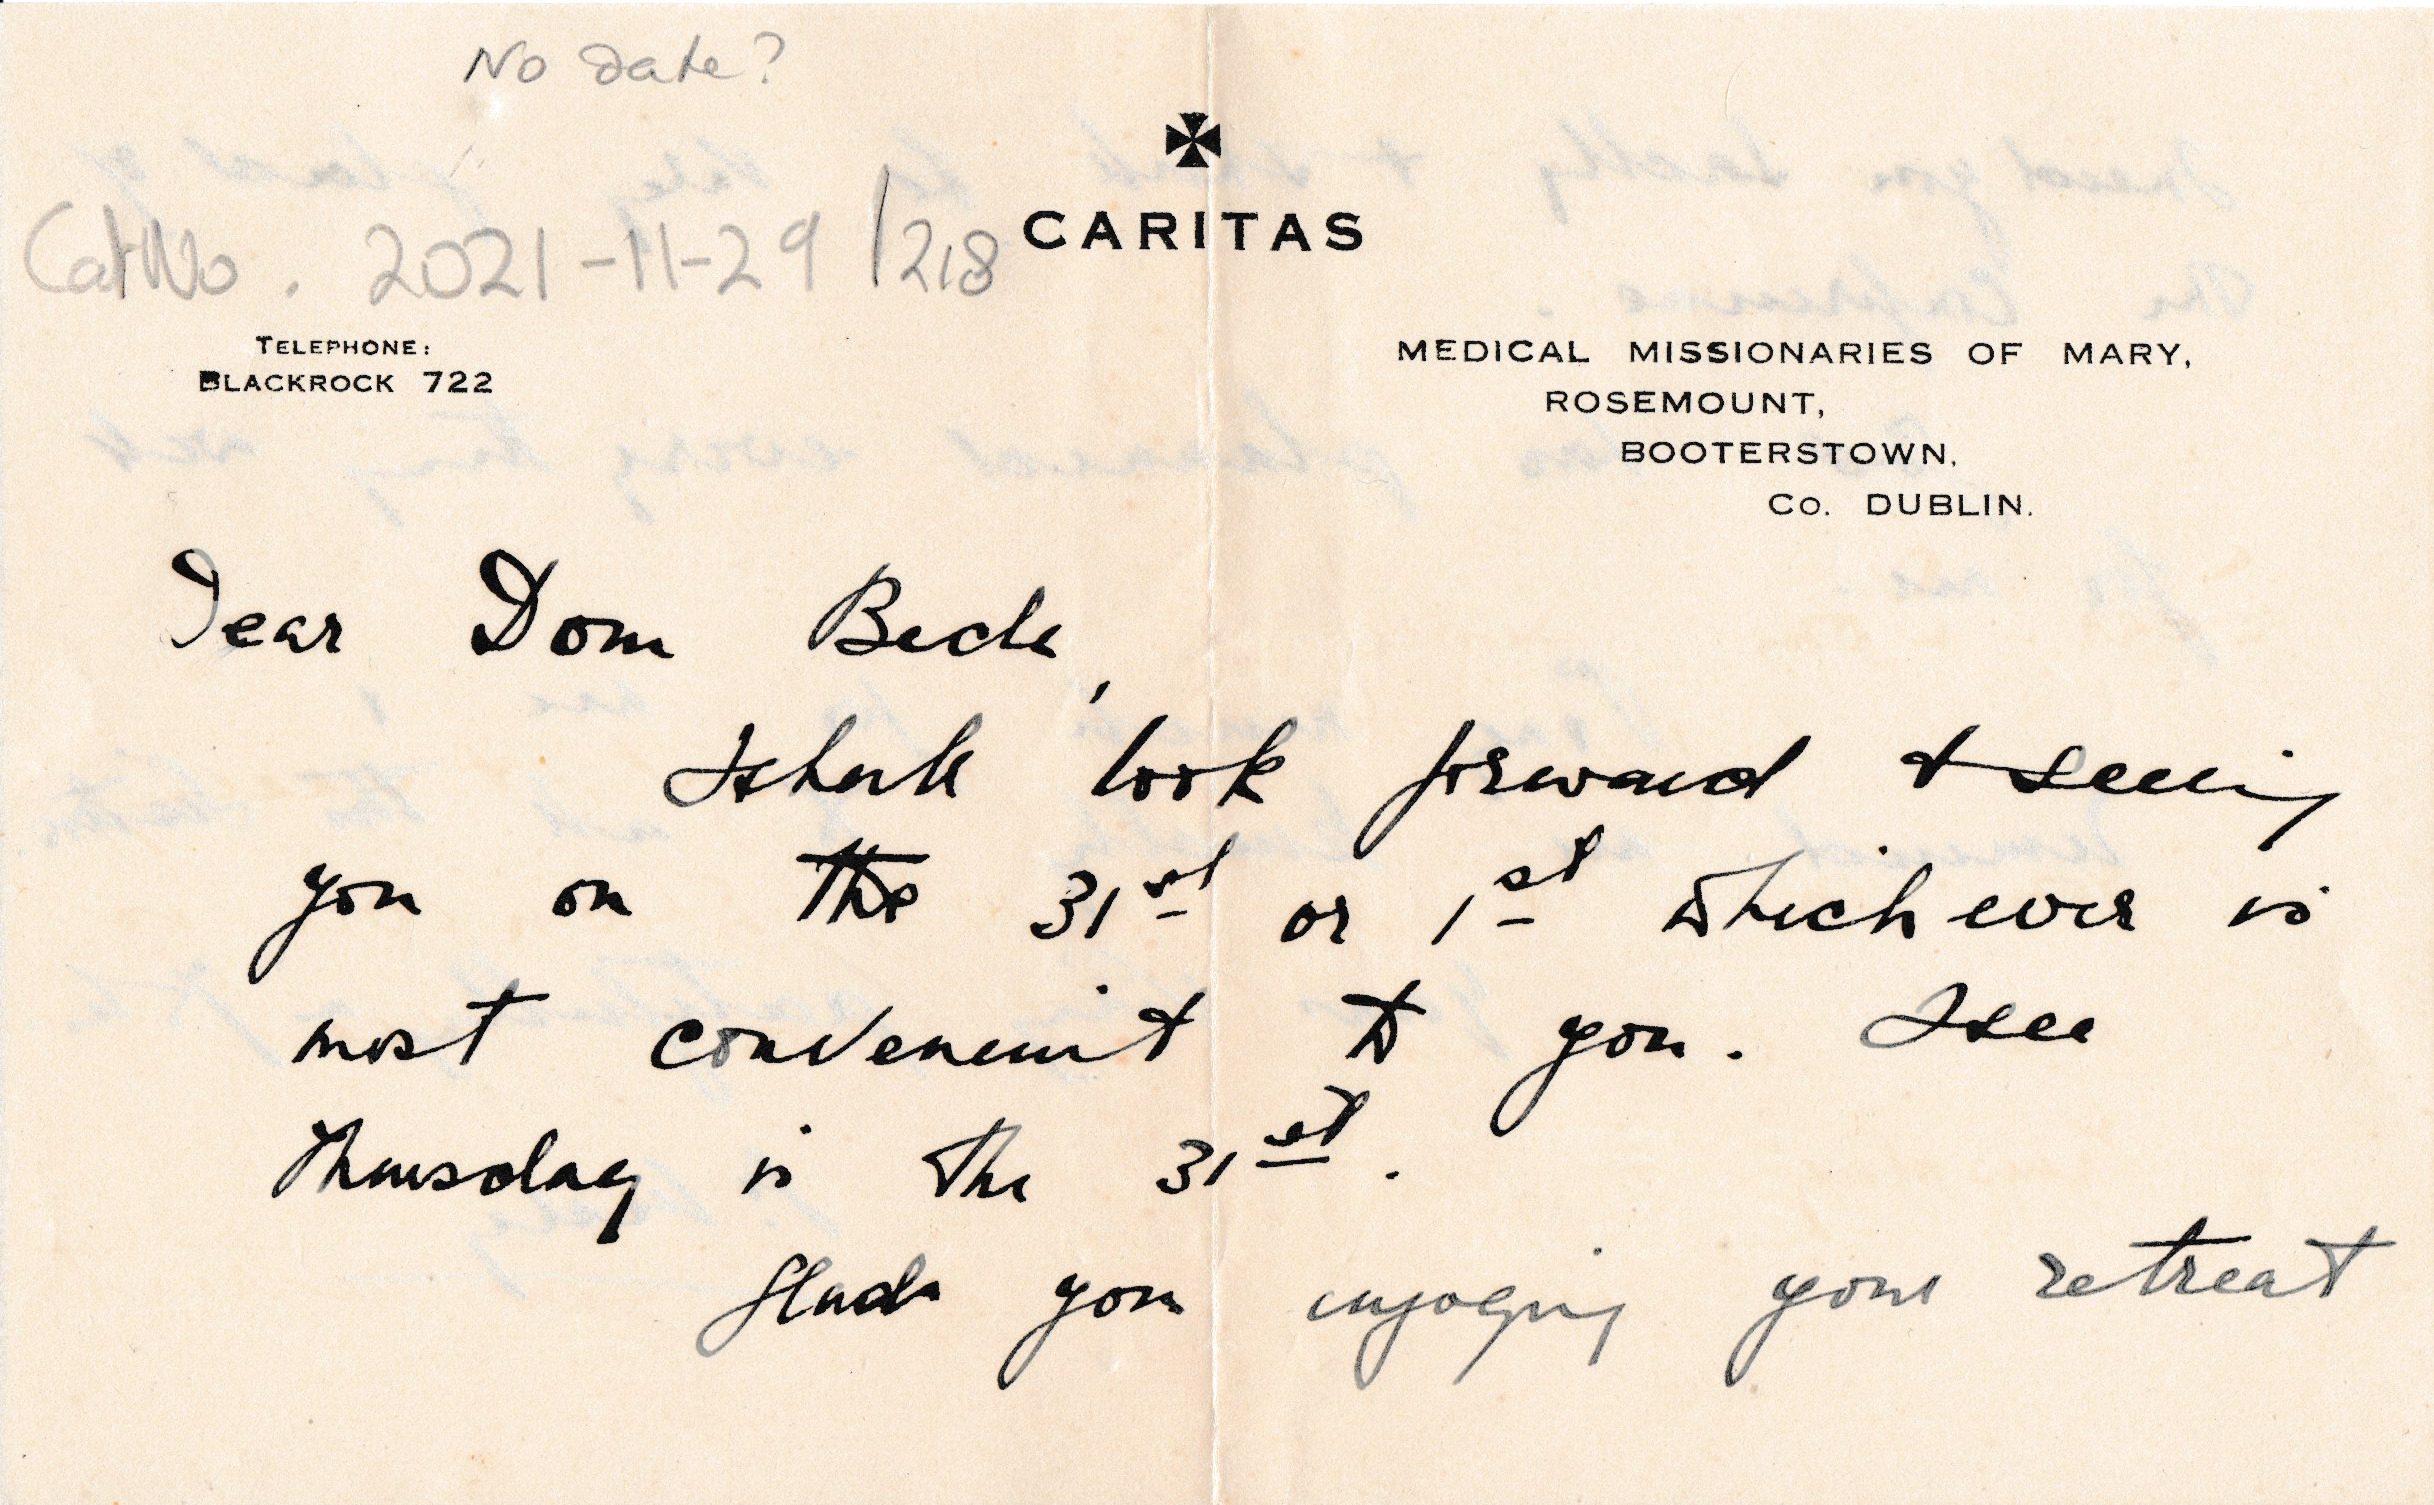 No date?
CARITAS
Cat No. 2021-11-29/218
TELEPHONE:
BLACKROCK 722
MEDICAL MISSIONARIES OF MARY,
ROSEMOUNT,
BOOTERSTOWN,
Co. DUBLIN.
Dear Dom Bede,
I shall look forward to seeing
you on the 31st or 1st whichever is
most convenient to you. I see
Thursday is the 31st.
Glad you enjoying your retreat